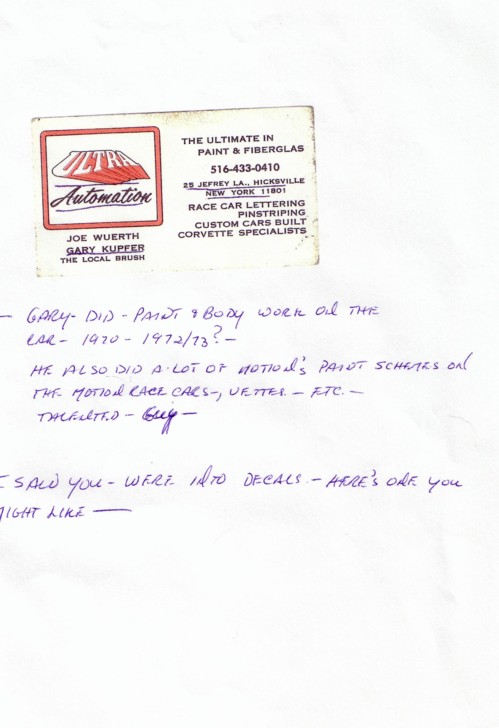 ULTRA
Automation
JOE WUERTH
GARY KUPFER
THE LOCAL BRUSH
THE ULTIMATE IN
PAINT & FIBERGLAS
516-433-0410
25 JEFREY LA., HICKSVILLE
NEW YORK 11801
RACE CAR LETTERING
PINSTRIPING
CUSTOM CARS BUILT
CORVETTE SPECIALISTS
— GARY - DID - PAINT & BODY WORK ON THE
CAR - 1970 - 1972/73? -
HE ALSO DID A LOT OF MOTION'S PAINT SCHEMES ON
THE MOTION RACE CARS -, VETTES - ETC. -
TALENTED - Guy -
I SAW YOU - WERE INTO DECALS - HERE'S ONE YOU
MIGHT LIKE —